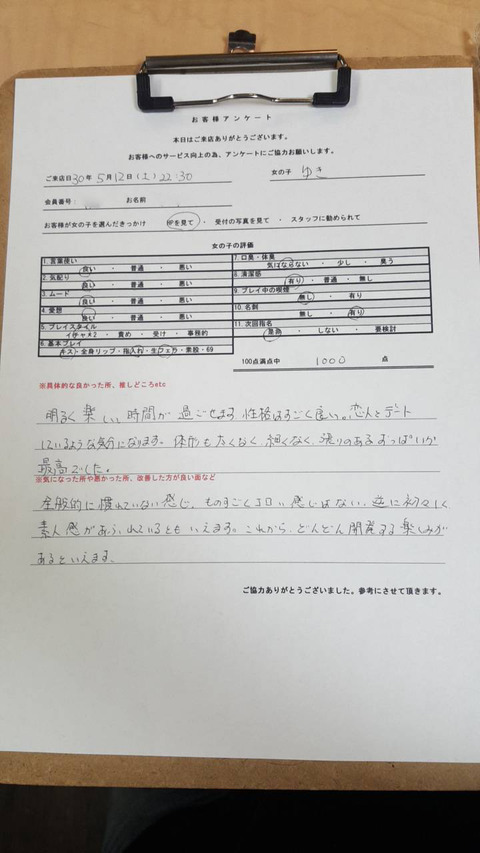 お客様アンケート
本日はご来店ありがとうございます。
お客様へのサービス向上の為、アンケートにご協力お願いします。
ご来店日30年 5月12日(土)22:30 女の子 ゆき
会員番号: お名前
お客様が女の子を選んだきっかけ HPを見て・受付の写真を見て・スタッフに勧められて
女の子の評価
1.言葉使い
良い・普通・悪い
2.気配り
良い・普通・悪い
3.ムード
良い・普通・悪い
4.愛想
良い・普通・悪い
5.プレイスタイル
イチャ×2・責め・受け・事務的
6.基本プレイ
キス・全身リップ・指入れ・生フェラ・素股・69
7.口臭・体臭
気ばならない・少し・臭う
8.清潔感
有り・普通・無し
9.プレイ中の喫煙
無し・有り
10.名刺
無し・有り
11.次回指名
是非・しない・要検討
100点満点中 1000 点
※具体的な良かった所、推しどころetc
明るく楽しい時間が過ごせます。性格はすごく良い。恋人とデート
しているような気分になります。体形も太くなく、細くなく、張りのあるおっぱいが
最高でした。
※気になった所や悪かった所、改善した方が良い面など
全般的に慣れていない感じ、ものすごくエロい感じはない。逆に初々しく
素人感があふれているともいえます。これから、どんどん開発する楽しみが
あるといえます。
ご協力ありがとうございました。参考にさせて頂きます。